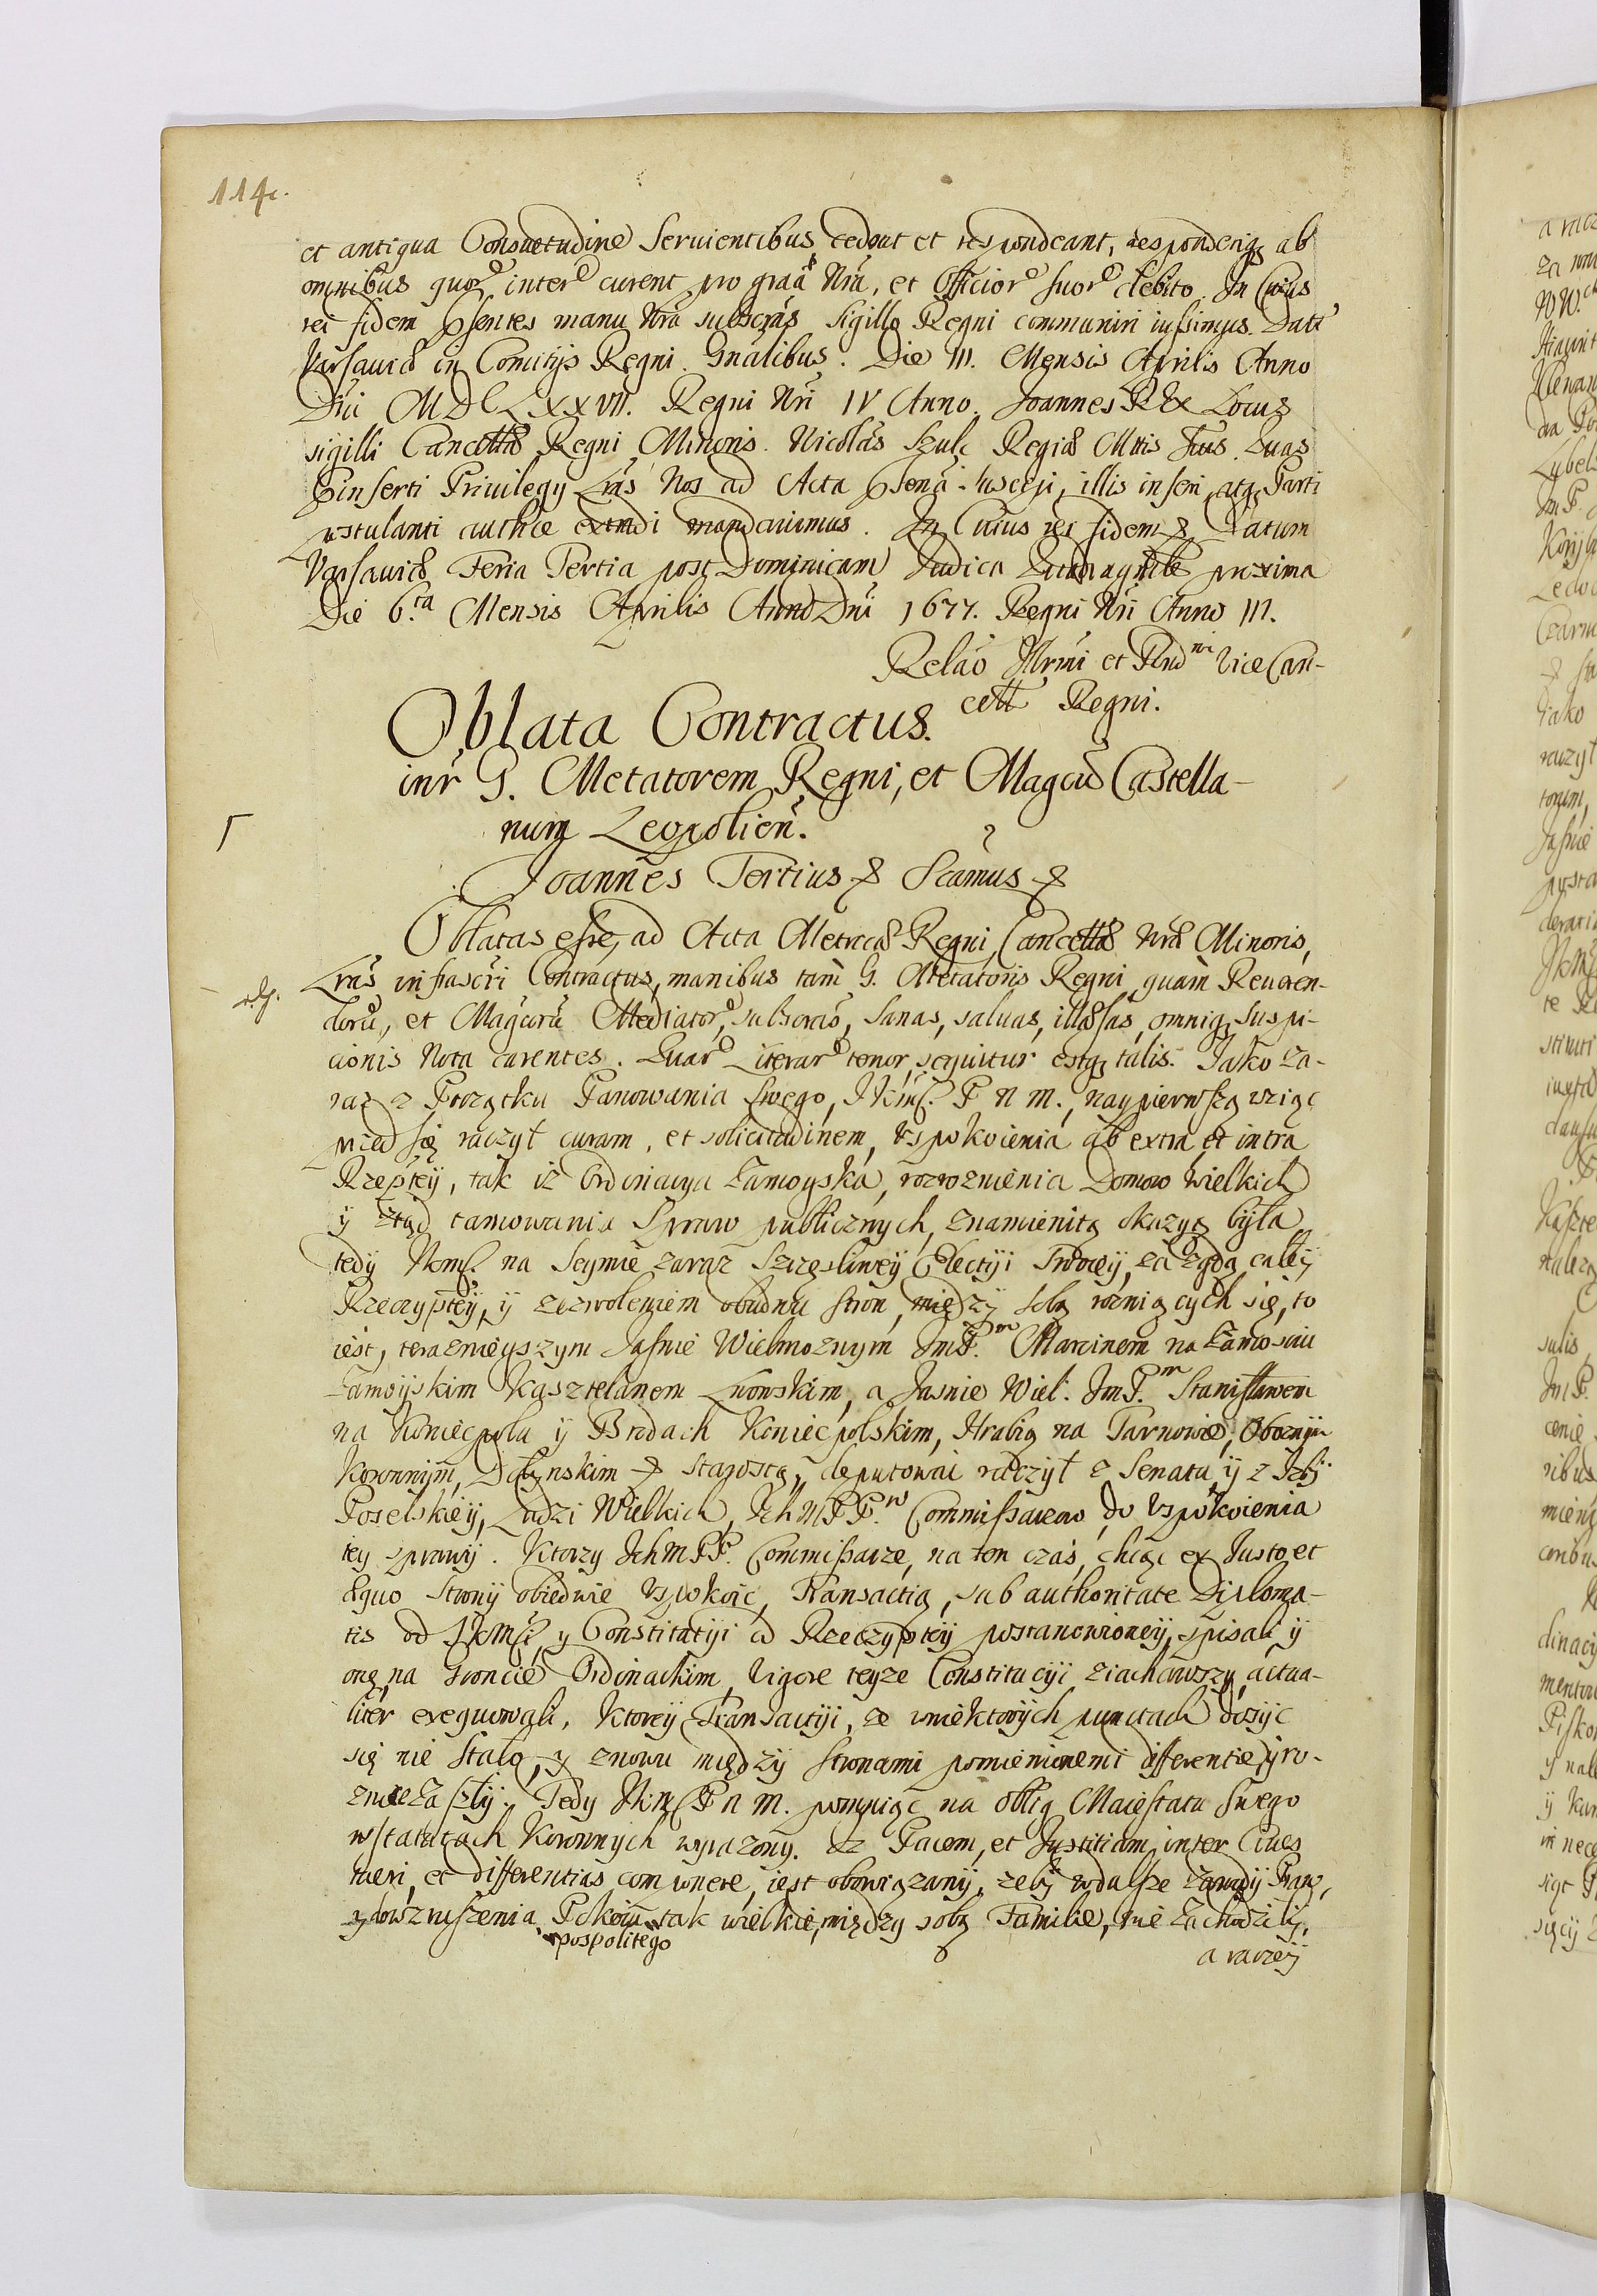 114.
et antiqua Consuetudine Seruientibus cedant et respondeant, responderiq, ab
omnibus quor̃ inter̃ curent pro graã Nrã, et Officior̃ suor̃ debito. In Cuius
rei fidem pñsentes manu Nrã subscrãs Sigillo Regni communiri iussimus. Datt
Varsauiæ in Comitijs Regni Gnãlibus. Die III. Mensis Aprilis Anno
Dñi MDCLXXVII. Regni Nri IV Anno. Joannes REx Locus
sigilli Cancellæ Regni Minoris. Nicolaus Szulc Regiæ Mttis Srius. Quas
pinserti Priuilegij Lrãs Nos ad Acta pñsenã suscepi, illis inseri, atq, Parti
postulanti authce extradi mandauimus. In Cuius rei fidem & Datum
Varsauiæ Feria Tertia post Dominicam Judica Quadragsile proxima
Die 6.ta Mensis Aprilis Anno Dñi 1677. Regni Nri Anno III.
Relaõ Illrmi et Rndmi Vice Can-
cell Regni.
Oblata Contractus.
intr G. Metatorem Regni, et Magcũ Castella-
num Leopolien̄.
Joannes Tertius & Scãmus &
Oblatas esse, ad Acta Metrices Regni, Cancellæ Nræ Minoris,
Lrãs infrascri Contractus, manibus tam G. Metatoris Regni, quàm Reueren-
dorũ, et Magcorũ Mediator̃, subscrãs, sanas, saluas, illæsas, omniq, suspi-
cionis Nota carentes. Quar̃ Literar̃ tenor sequitur estq, talis. Jako za-
raz z Początku Panowania Swego, JKMś. P N M., naypierwszą wziąc
przed się raczył curam, et solicitudinem, Vspokoienia ab extra, et intra
Rzeptey, tak iz Ordinacya Zamoyska, rozroznienia Domow Wielkich
ÿ ztąd tamowania Spraw publicznych, znamienitą okazyą była
tedy JKmś. na Seymie zaraz Szczęsliwey Electiji Swoiey, za zgodą całey
Rzeczypltey, ÿ zezwoleniem oboudwu stron, międzÿ sobą rozniących się, to
iest, teraznieyszym Jasnie Wielmoznym JmP.m Marcinem na Zamosciu
Zamoyskim Kasztelanem Lwowskim, a Jasnie Wiel. JmP.m Stanisławem
na Koniecpolu ÿ Brodach Koniecpolskim, Hrabią na Tarnowie, Oboznÿm
Koronnÿm, Dolÿnskim & Starostą, deputowac raczył z Senatu, ÿ z Izbÿ
Poselskieÿ, Ludzi Wielkich, IchMPP.w Commissarzow do Vspokoienia
tey sprawÿ. Ktorzy IchMPP. Commissarze, na ten czas, chcąc ex Justo, et
Æquo Stronÿ obiedwie Vspokoic, Transactią, sub authoritate Diploma-
tis od JKMśi, y Constitutÿi od Rzeczyptey postanowioneÿ, spisali, ÿ
onę na groncie Ordinackim, Vigore teyze Constitucÿi ziachawszy, actua-
liter exequowali, Ktoreÿ Transactÿi, ze wniektorÿch punctach dosÿc
się nie stało, y znowu międzÿ stronami pomienionemi differentie, ÿ ro-
znice zaszłÿ. Tedy JKMśP N M. pomniąc na oblig Maiestatu Swego
wstatutach Koronnych wyrazony. Iz Pacem, et Justitiam, inter Ciues
tueri, et differentias componere, iest obowiązanÿ, zebÿ wdalsze zawodÿ Praw,
y do wzruszenia Pokoiu pospolitego tak wielkie, między sobą Familie, nie zachodziłÿ.
a raczeÿ